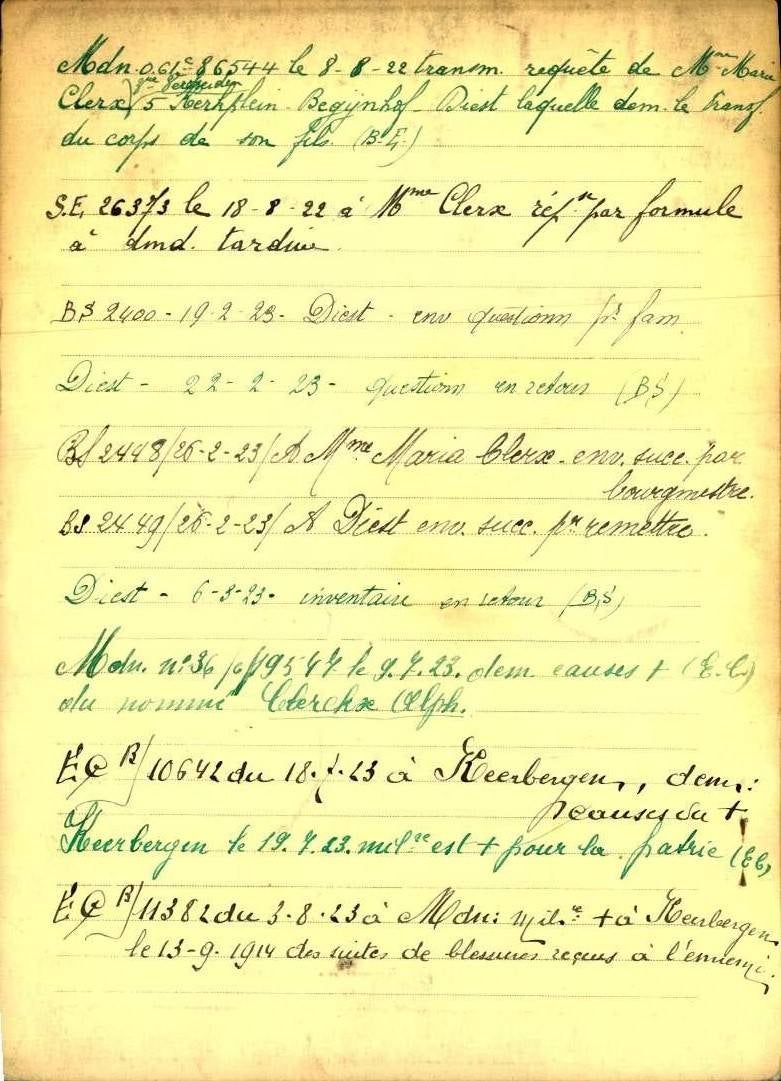 Mdn. 061c 86544 le 8-8-22 transm. requête de Mme Marie
Clerx 5 Kerkplein Begijnhof Diest laquelle dem. le transf.
du corps de son fils. (B.E.)
S.E. 26373 le 18-8-22 à Mme Clerx rép. par formule
à dmd. tardive.
BS 2400 - 19-2-23 - Diest - env questionn pr fam.
Diest - 22-2-23 - questionn en retour (BS)
BS 2448/26-2-23/A Mme Maria Clerx - env. succ. par
bourgmestre.
BS 2449/26-2-23/ A Diest env. succ. pr remettre.
Diest - 6-3-23 - inventaire en retour (BS)
Mdn. n° 36 19547 le 9.7.23. dem. causes + (E.C.)
du nommé Clerckx Alph.
EC B/10642 du 18.7.23 à Keerbergen, dem:
causes du +
Keerbergen le 19.7.23. milre est + pour la patrie (EC)
EC B/11382 du 3-8-23 à Mdn: milre + à Keerbergen
le 13-9-1914 des suites de blessures reçues à l'ennemi.